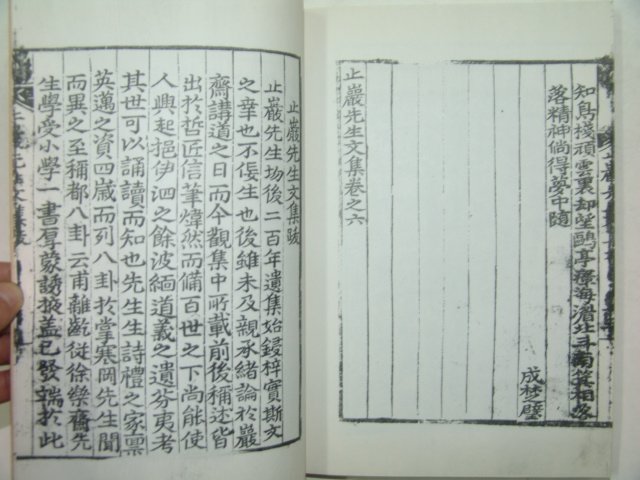 知鳥㙜頑雲裏却望鷗亭瘴海㵎北斗南箕相
落精神倘得夢中隨
成梦壁
止巖先生文集卷之六
止巖先生文集跋
止巖先生均後二百年遺集始鋟梓實斯文
之幸也不佞生也後雖未及親承緒論於巖
齋講道之日而今觀集中所載前後稱述皆
出於哲匠信筆煒然而備百世之下尚能使
人興起挹伊泗之餘波緬道義之遺芬夷考
其世可以誦讀而知也先生生詩禮之家
英邁之資四歲而列八卦於掌寒岡先生聞
而異之至稱都八卦云甫離齔從徐樂齋先
生學受小學一書厚蒙誘掖盖已發端於此